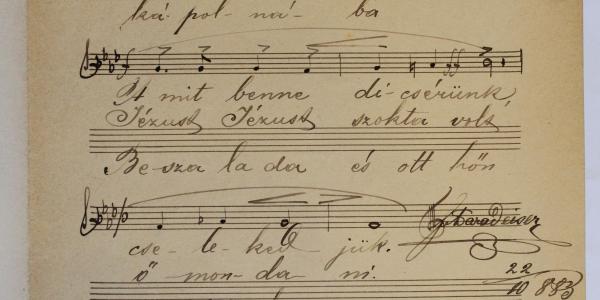 ká- pol- ná- ba
It mit benne di-csérünk,
Jézust Jézust szokta volt
Be-sza la da és ott hőn
cse- le- ked- jük.
ő mon- da ni.
22
10 883